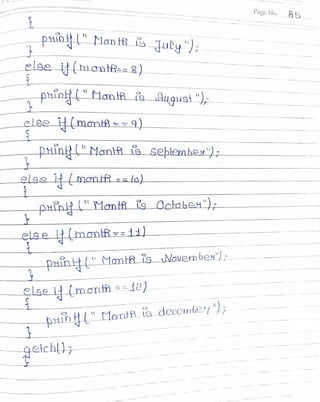 Page No. 85
{
printf(" Month is July");
}
else if (month==8)
{
printf(" Month is August");
}
else if (month==9)
{
printf(" Month is september");
}
else if (month ==10)
{
printf(" Month is October");
}
else if (month==11)
{
printf(" Month is November");
}
else if (month ==12)
{
printf(" Month is december");
}
getch();
}